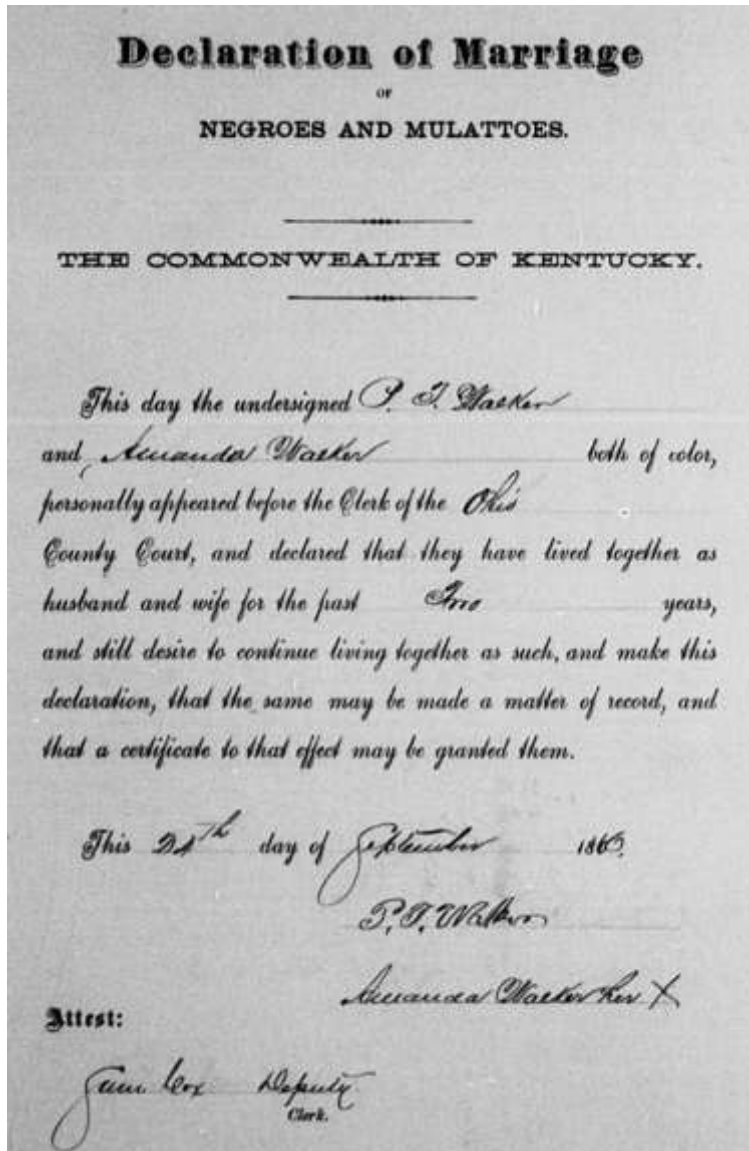 Declaration of Marriage
OF
NEGROES AND MULATTOES.
THE COMMONWEALTH OF KENTUCKY.
This day the undersigned P. T. Walker
and Amanda Walker both of color,
personally appeared before the Clerk of the Ohio
County Court, and declared that they have lived together as
husband and wife for the past Two years,
and still desire to continue living together as such, and make this
declaration, that the same may be made a matter of record, and
that a certificate to that effect may be granted them.
This 24th day of September 186
P. T. Walker
Amanda Walker her X
Attest:
Sam Cox Deputy
Clerk.